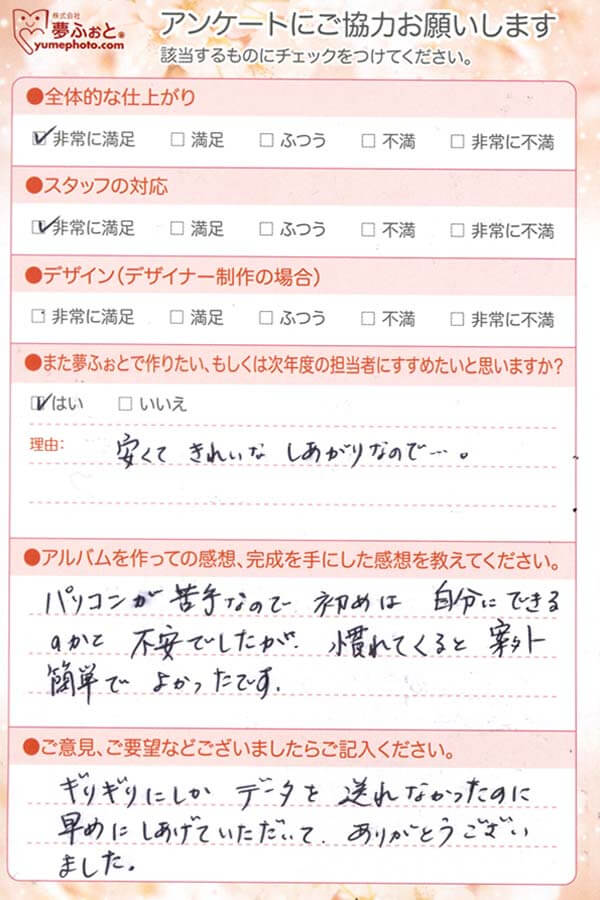 株式会社
夢ふぉと®
yumephoto.com
アンケートにご協力お願いします
該当するものにチェックをつけてください。
●全体的な仕上がり
☑非常に満足 □満足 □ふつう □不満 □非常に不満
●スタッフの対応
☑非常に満足 □満足 □ふつう □不満 □非常に不満
●デザイン(デザイナー制作の場合)
□非常に満足 □満足 □ふつう □不満 □非常に不満
●また夢ふぉとで作りたい、もしくは次年度の担当者にすすめたいと思いますか?
☑はい □いいえ
理由: 安くて きれいな しあがりなので…。
●アルバムを作っての感想、完成を手にした感想を教えてください。
パソコンが苦手なので 初めは 自分にできる
のかと 不安でしたが、慣れてくると 案外
簡単で よかったです.
●ご意見、ご要望などございましたらご記入ください。
ギリギリにしか データを 送れなかったのに
早めに しあげていただいて、ありがとうござい
ました。